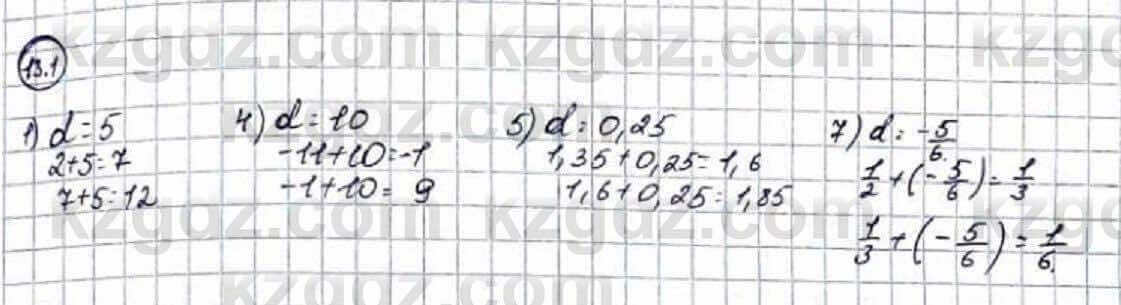 kzgdz.com kzgdz.com kzgdz.com
13.1
1) d = 5
2+5=7
7+5=12
4) d = 10
-11+10=-1
-1+10= 9
5) d = 0,25
1,35+0,25=1,6
1,6+0,25=1,85
7) d = -5/6.
1/2+(-5/6)=1/3
1/3+(-5/6)=1/6.
kzgdz.com kzgdz.com kzgdz.com